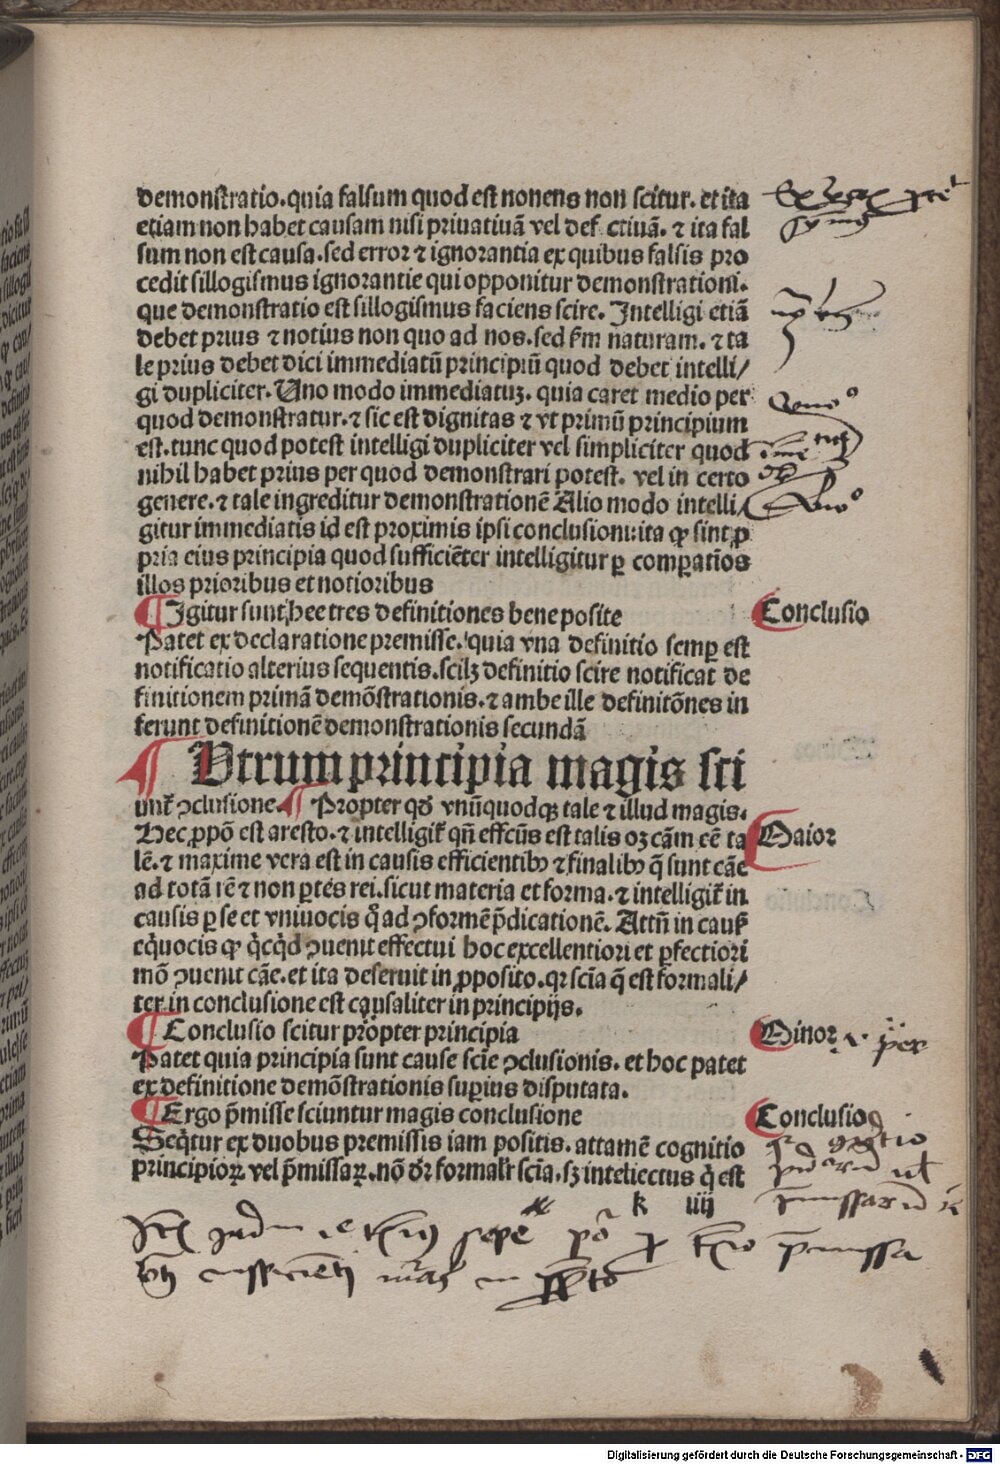 demonstratio. quia falsum quod est nonens non scitur. et ita
etiam non habet causam nisi priuatiuā vel def ctiuā. ⁊ ita fal
sum non est causa. sed error ⁊ ignorantia ex quibus falsis pro
cedit sillogismus ignorantie qui opponitur demonstrationi.
que demonstratio est sillogismus faciens scire. Intelligi etiā
debet prius ⁊ notius non quo ad nos. sed scḋm naturam. ⁊ ta
le prius debet dici immediatū principiū quod debet intelli/
gi dupliciter. Uno modo immediatuꝫ. quia caret medio per
quod demonstratur. ⁊ sic est dignitas ⁊ vt primū principium
est. tunc quod potest intelligi dupliciter vel simpliciter quod
nihil habet prius per quod demonstrari potest. vel in certo
genere. ⁊ tale ingreditur demonstrationē Alio modo intelli/
gitur immediatis id est proximis ipsi conclusioni: ita ꝙ sint ꝓ
pria eius principia quod sufficiēter intelligitur ꝑ comꝑatiōs
illos prioribus et notioribus
¶ Igitur sunt hee tres definitiones bene posite
Conclusio
Patet ex declaratione premisse. quia vna definitio semꝑ est
notificatio alterius sequentis. scilꝫ definitio scire notificat de
finitionem primā demōstrationis. ⁊ ambe ille definitōnes in
ferunt definitionē demonstrationis secundā
¶ Vtrum principia magis sci
unt᷑ ꝯclusione. ¶ Propter qḋ vnūquodqꝫ tale ⁊ illud magis.
Maior
Hec ꝓpō est aresto. ⁊ intelligit᷑ qn̄ effcūs est talis oꝫ cām eē ta
lē. ⁊ maxime vera est in causis efficientibꝰ ⁊ finalibꝰ q̄ sunt cāe
ad totā rē ⁊ non ꝑtes rei. sicut materia et forma. ⁊ intelligit᷑ in
causis ꝑ se et vniuocis qͦ ad ꝯformē p̄dicationē. Attn̄ in causꝭ
eq̇uocis ꝙ q̇cq̇d ꝯuenit effectui hoc excellentiori et ꝑfectiori
mō ꝯuenit cāe. et ita deseruit in ꝓposito. qꝛ scīa q̄ est formali/
ter in conclusione est causaliter in principijs.
¶ Conclusio scitur propter principia
Minor
Patet quia principia sunt cause scīe ꝯclusionis. et hoc patet
ex definitione demōstrationis suꝑius disputata.
¶ Ergo p̄misse sciuntur magis conclusione
Conclusio
Seq̇tur ex duobus premissis iam positis. attamē cognitio
principioꝝ vel p̄missaꝝ. nō dr̄ formalr̄ scīa. sꝫ intellectus q̇ est
k iiij
Digitalisierung gefördert durch die Deutsche Forschungsgemeinschaft - DFG